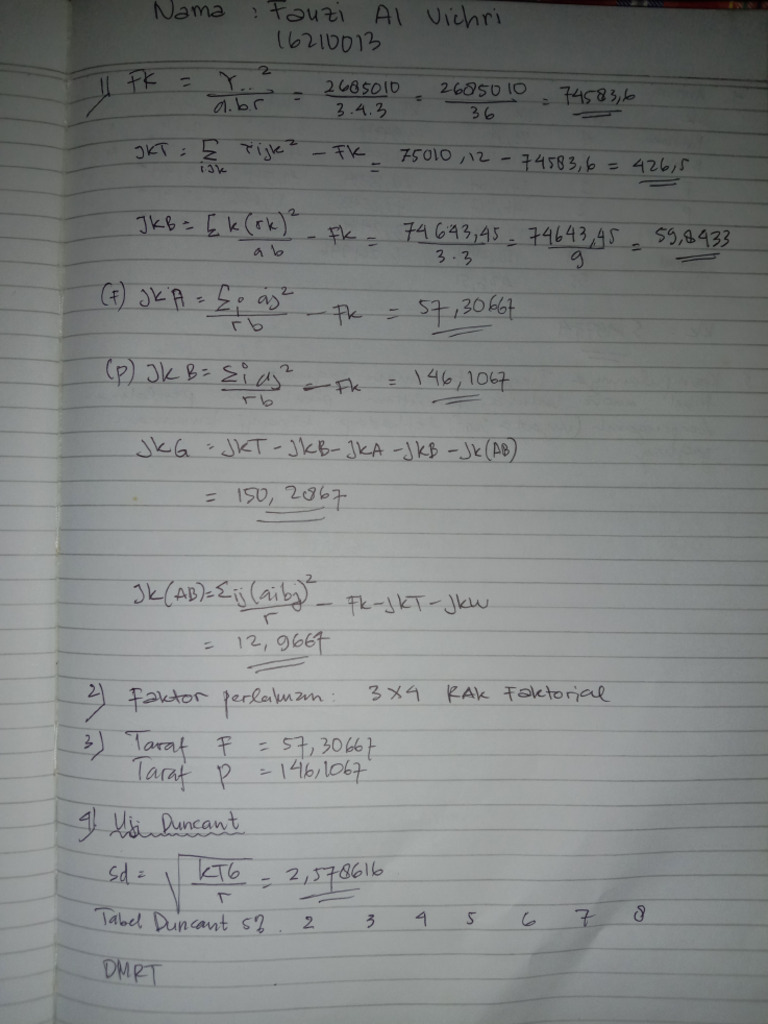 Nama : Fauzi Al Vichri
16210013
1) FK = Y..² / a.b.r = 2685010 / 3.4.3 = 2685010 / 36 = 74583,6
JKT = Σ ijk Yijk² - FK = 75010,12 - 74583,6 = 426,5
JKB = Σ k(rk)² / ab - FK = 74643,45 / 3.3 = 74643,45 / 9 = 59,8433
(F) JKA = Σi aj² / rb - FK = 57,30667
(P) JKB = Σi aj² / rb - FK = 146,1067
JKG = JKT - JKB - JKA - JKB - JK(AB)
= 150,2867
JK(AB) = Σij(aibj)² / r - FK - JKT - JKW
= 12,9667
2) Faktor perlakuan : 3 x 4 RAK Faktorial
3) Taraf F = 57,30667
Taraf P = 146,1067
4) Uji Duncant
Sd = √ KTG / r = 2,578616
Tabel Duncant 2 3 4 5 6 7 8
DMRT